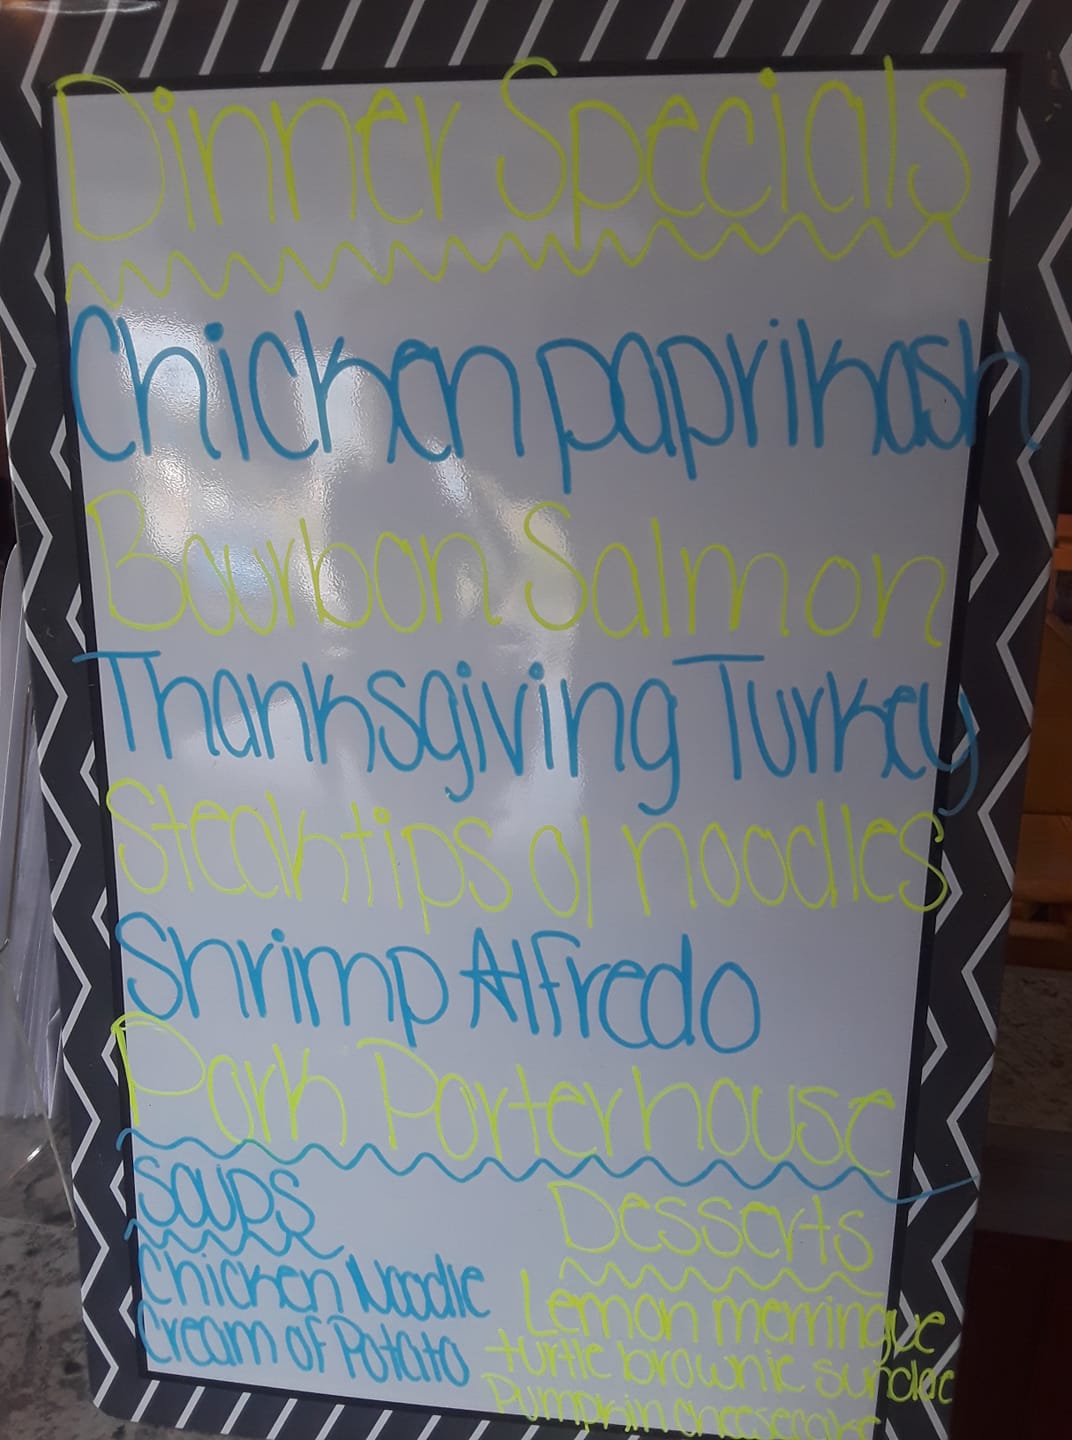 Dinner Specials
Chicken paprikash
Bourbon Salmon
Thanksgiving Turkey
Steak tips o/ noodles
Shrimp Alfredo
Pork Porterhouse
Soups
Chicken Noodle
Cream of Potato
Desserts
Lemon merringue
turtle brownie sundae
Pumpkin cheesecake